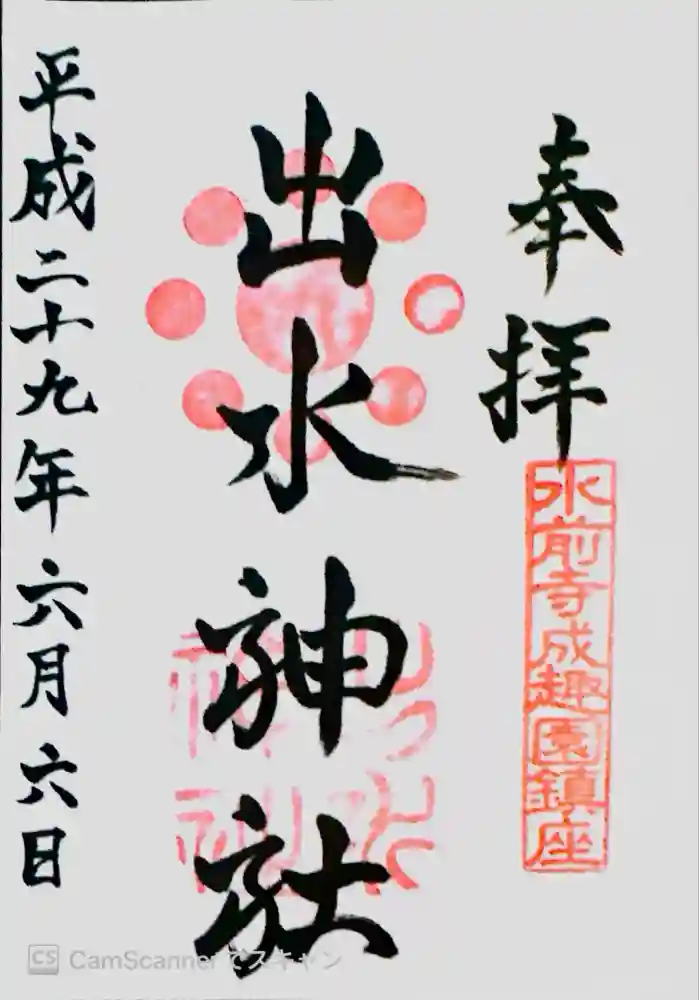 奉拝
水前寺成趣園鎮座
出水神社
平成二十九年六月六日
出水神社
CS CamScannerでスキャン